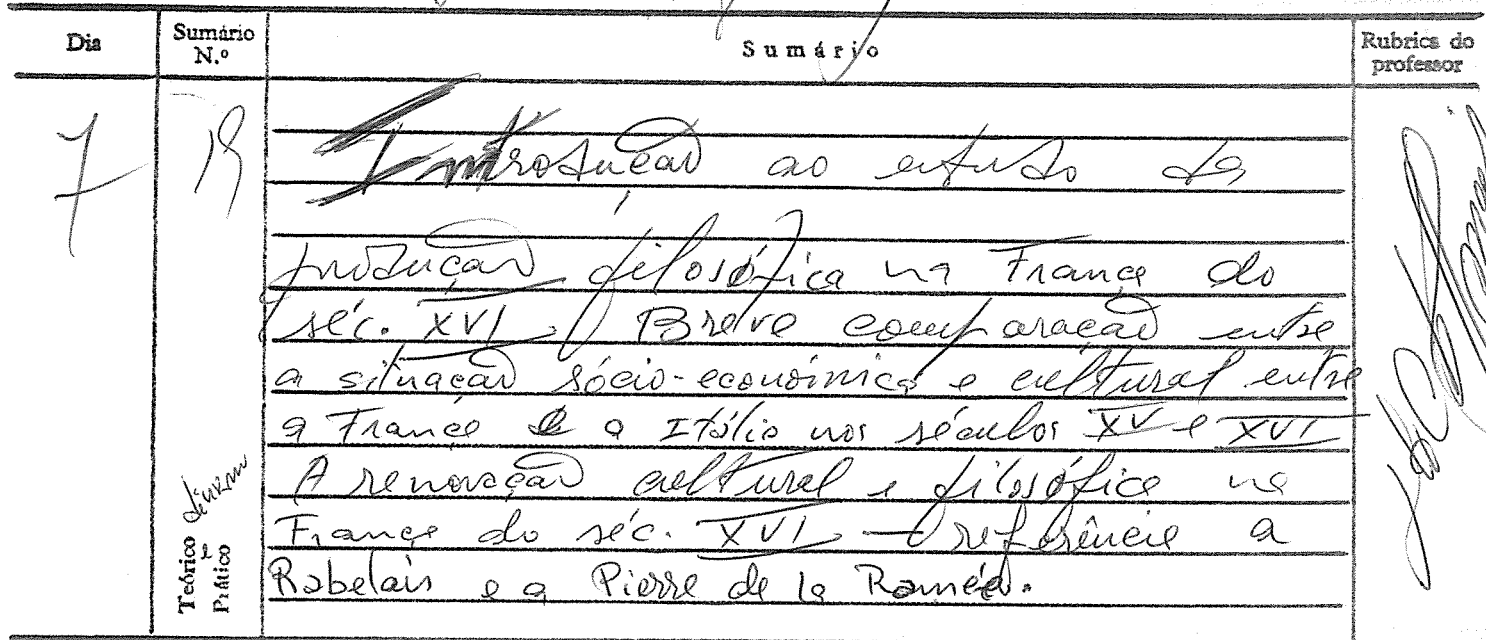 Dia
Sumário N.º
Sumário
Rubrica do professor
7
19
Introdução ao estudo da
produção filosófica na França do
séc. XVI. Breve comparação entre
a situação sócio-económica e cultural entre
a França e a Itália nos séculos XV e XVI
A renovação cultural e filosófica na
França do séc. XVI — referência a
Rabelais e a Pierre de la Ramée.
Teórico e Prático